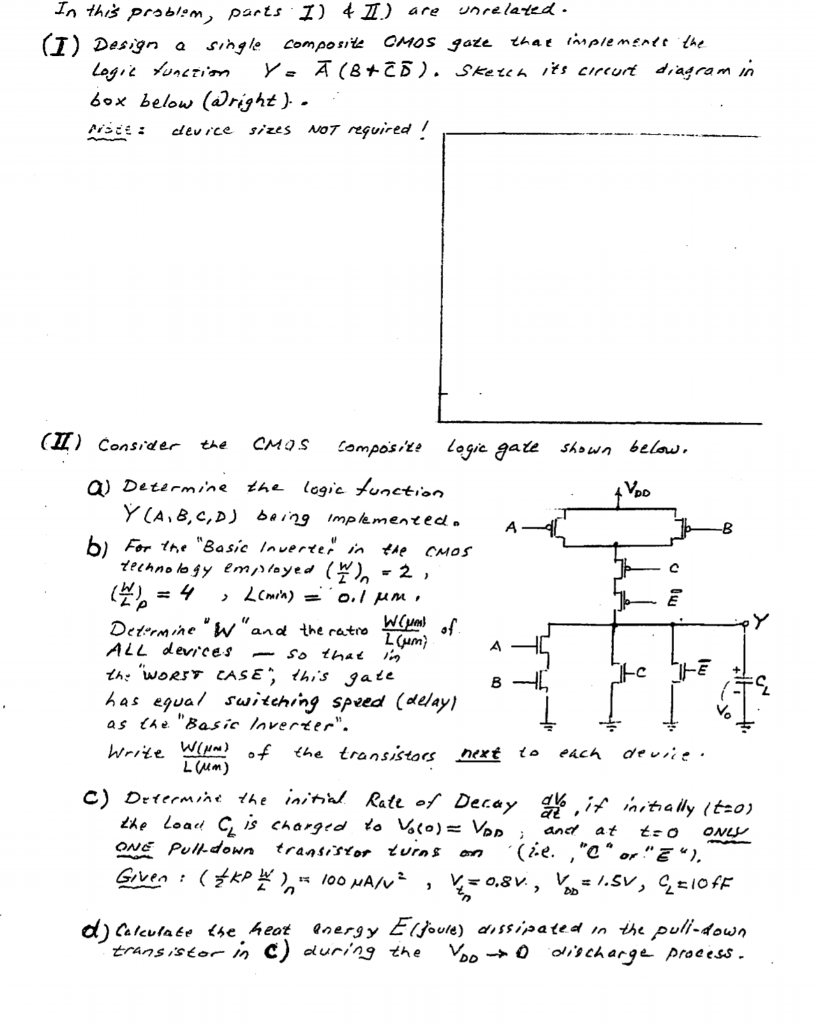 In this problem, parts I) & II) are unrelated.
(I) Design a single composite CMOS gate that implements the
Logic function Y = A̅ (B + C̅ D̅). Sketch its circuit diagram in
box below (@right).
Note: device sizes NOT required!
(II) Consider the CMOS Composite Logic gate shown below.
a) Determine the logic function
Y(A,B,C,D) being implemented.
b) For the "Basic Inverter" in the CMOS
technology employed (W/L)n = 2,
(W/L)p = 4, L(min) = 0.1 µm.
Determine "W" and the ratio W(µm)/L(µm) of
ALL devices — so that in
the "WORST CASE", this gate
has equal switching speed (delay)
as the "Basic Inverter".
Write W(µm)/L(µm) of the transistors next to each device.
VDD
A
B
C
E̅
Y
A
B
C
E̅
+
-
CL
Vo
c) Determine the initial Rate of Decay dVo/dt, if initially (t=0)
the Load CL is charged to Vo(o) = VDD; and at t=0 ONLY
ONE Pull-down transistor turns on (i.e., "C" or "E̅").
Given: (½KP W/L)n = 100 µA/V², Vtn = 0.8V., VDD = 1.5V, CL = 10fF
d) Calculate the heat energy E(joule) dissipated in the pull-down
transistor in c) during the VDD → 0 discharge process.